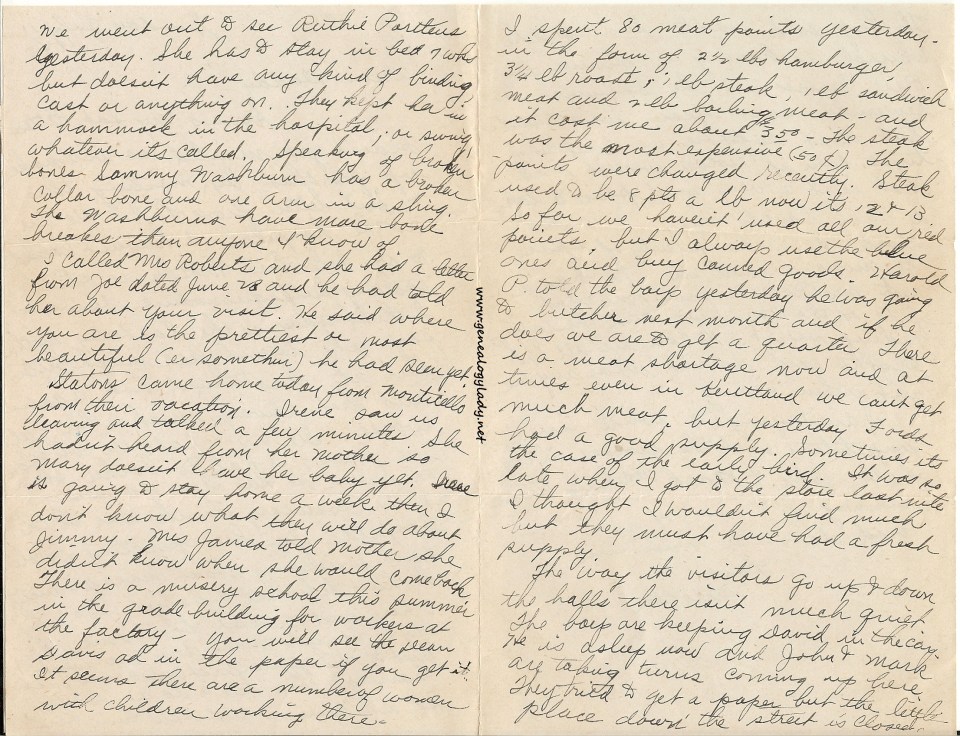 We went out to see Ruthie Porteus
yesterday. She has to stay in bed 7 wks
but doesn't have any kind of binding,
cast or anything on. They kept her in
a hammock in the hospital, or swing,
whatever its called. Speaking of broken
bones Sammy Washburn has a broken
collar bone and one arm in a sling.
The Washburns have more bone
breakes than anyone I know of
I called Mrs Roberts and she had a letter
from Joe dated June 28 and he had told
her about your visit. He said where
you are is the prettiest or most
beautiful (er somethin) he had seen yet.
Statons came home today from Monticello
from their vacation. Irene saw us
leaving and talked a few minutes. She
hadn't heard from her mother so
Mary doesn't have her baby yet. Irene
is going to stay home a week then I
don't know what they will do about
Jimmy. Mrs James told Mother she
didn't know when she would come back
There is a nursery school this summer
in the grade building for workers at
the factory - You will see the Dean
Davis ad in the paper if you get it.
It seems there are a number of women
with children working there.
I spent 80 meat points yesterday -
in the form of 2½ lbs hamburger,
3¼ lb roast, 1 lb steak, 1 lb sandwich
meat and 2 lb boiling meat - and
it cost me about 3.50 - The steak
was the most expensive (50¢). The
points were changed recently. Steak
used to be 8 pts a lb now its 12 & 13
So far we haven't used all our red
points, but I always use the blue
ones and buy canned goods. Harold
P. told the boys yesterday he was going
to butcher next month and if he
does we are to get a quarter. There
is a meat shortage now and at
times even in Kentland we can't get
much meat, but yesterday Fords
had a good supply. Sometimes its
the case of the early bird. It was so
late when I got to the store last nite
I thought I wouldn't find much
but they must have had a fresh
supply.
The way the visitors go up & down
the halls there isn't much quiet
The boys are keeping David in the car.
He is asleep now and John & Mark
are taking turns coming up here
They tried to get a paper but the little
place down the street is closed.
www.genealogylady.net